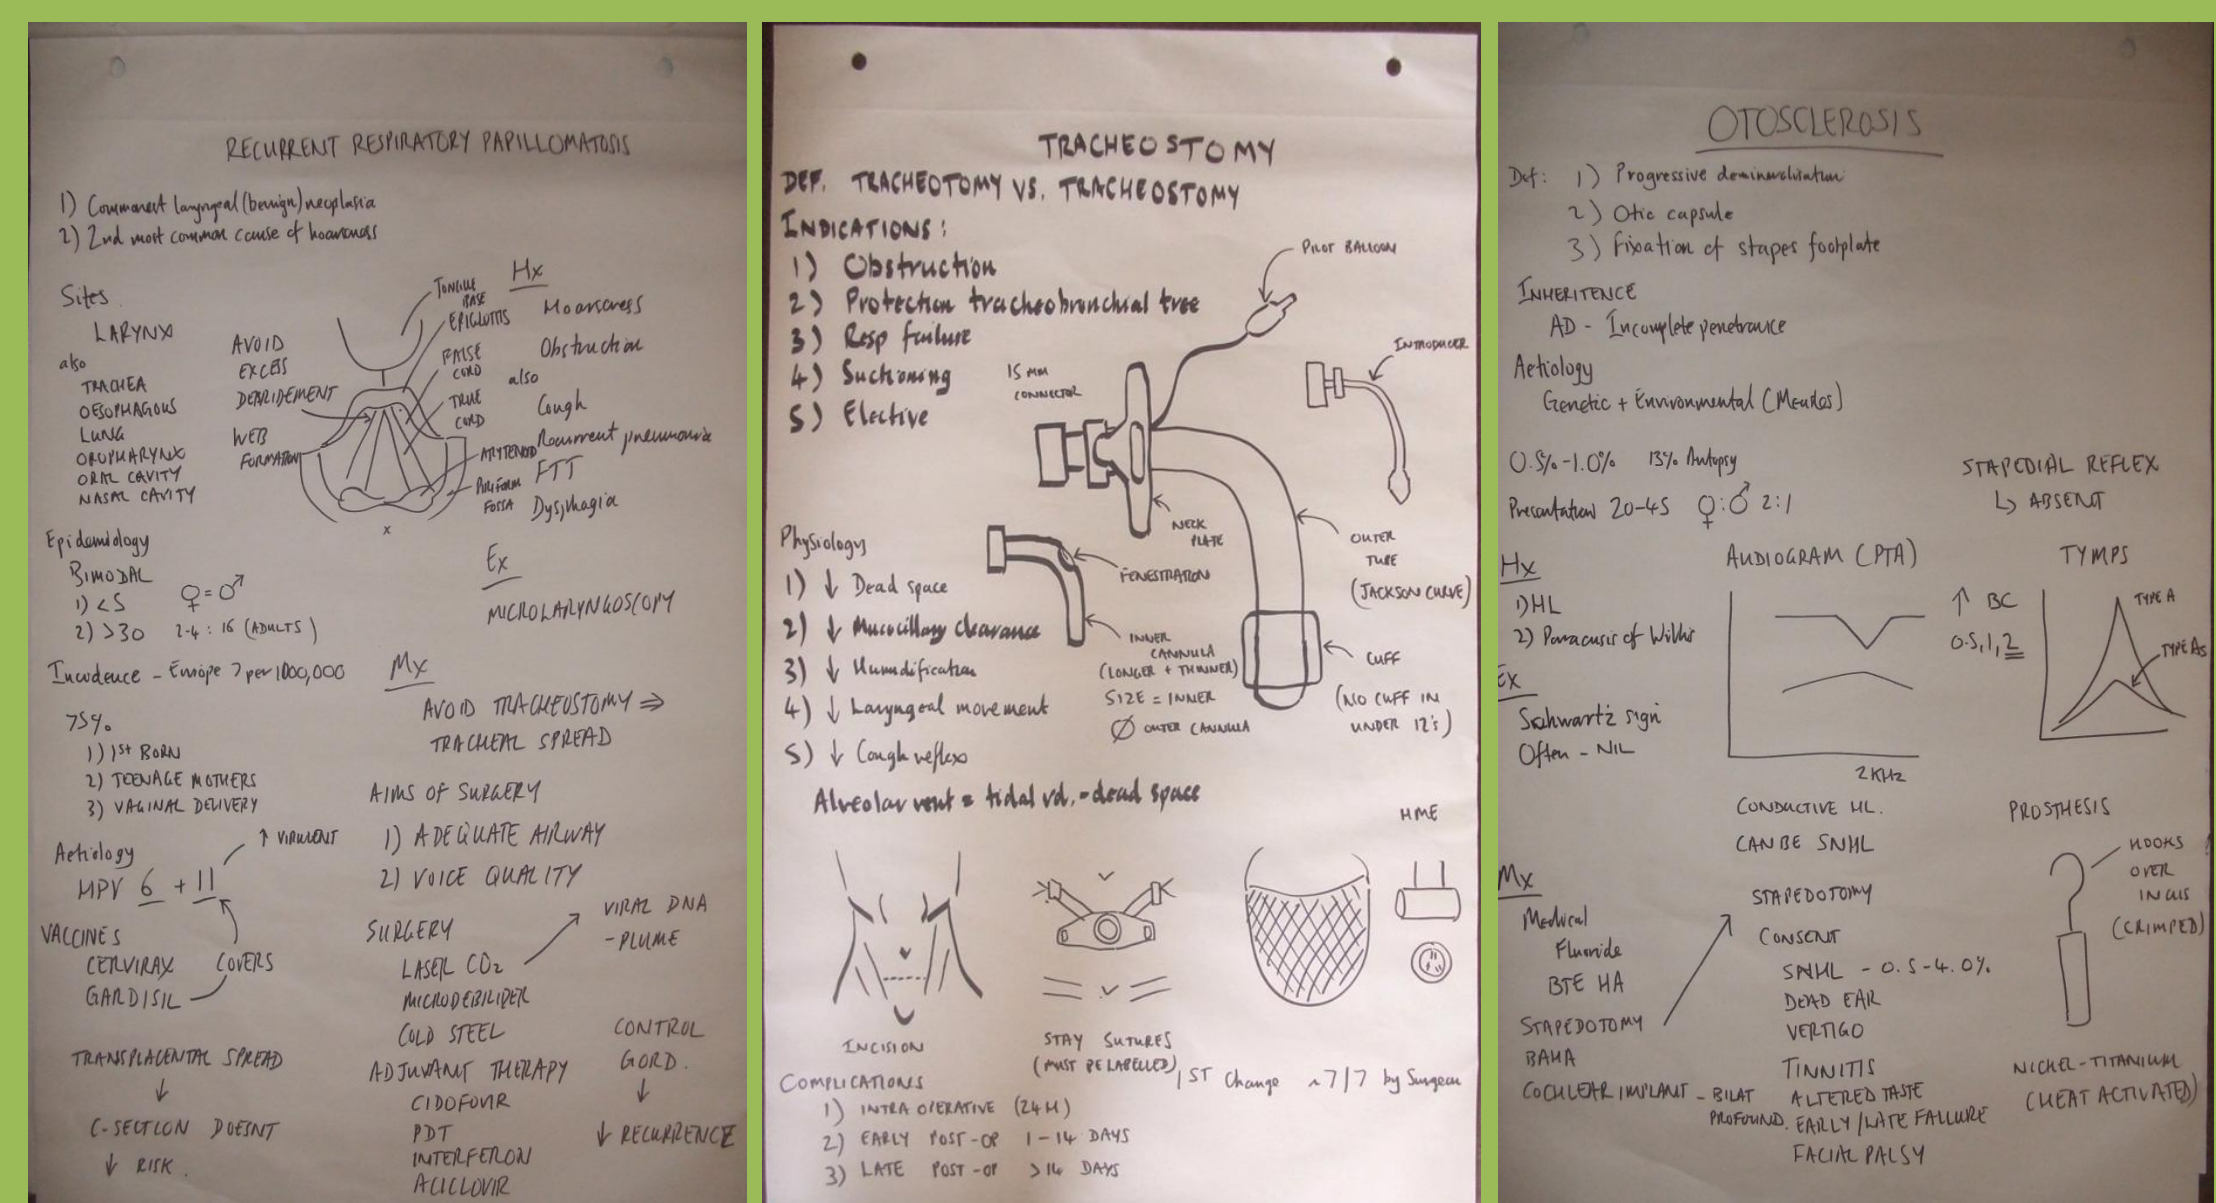 RECURRENT RESPIRATORY PAPILLOMATOSIS
1) Commonest laryngeal (benign) neoplasia
2) 2nd most common cause of hoarseness
Sites
LARYNX
also
TRACHEA
OESOPHAGOUS
LUNG
OROPHARYNX
ORAL CAVITY
NASAL CAVITY
AVOID
EXCESS
DEBRIDEMENT
WEB
FORMATION
TONGUE
BASE
EPIGLOTTIS
FALSE
CORD
TRUE
CORD
ARYTENOID
PIRIFORM
FOSSA
x
Hx
Hoarseness
Obstruction
also
Cough
Recurrent pneumonia
FTT
Dysphagia
Epidemiology
BIMODAL
1) <5 ♀=♂
2) >30 2-4 : 16 (ADULTS)
Ex
MICROLARYNGOSCOPY
Incidence - Europe 7 per 1000,000
75%
1) 1st BORN
2) TEENAGE MOTHERS
3) VAGINAL DELIVERY
Aetiology
↑ VIRULENT
HPV 6 + 11
VACCINES
CERVIRAX COVERS
GARDISIL
TRANSPLACENTAL SPREAD
↓
C-SECTION DOESNT
↓ RISK.
Mx
AVOID TRACHEOSTOMY ⇒
TRACHEAL SPREAD
AIMS OF SURGERY
1) ADEQUATE AIRWAY
2) VOICE QUALITY
SURGERY
LASER CO2
MICRODEBRIDER
COLD STEEL
VIRAL DNA
- PLUME
ADJUVANT THERAPY
CIDOFOVIR
PDT
INTERFERON
ACICLOVIR
CONTROL
GORD.
↓
↓ RECURRENCE
TRACHEOSTOMY
DEF. TRACHEOTOMY VS. TRACHEOSTOMY
INDICATIONS:
1) Obstruction
2) Protection tracheobronchial tree
3) Resp failure
4) Suctioning
5) Elective
PILOT BALLOON
INTRODUCER
15 MM
CONNECTOR
NECK
PLATE
OUTER
TUBE
(JACKSON CURVE)
FENESTRATION
INNER
CANNULA
(LONGER + THINNER)
SIZE = INNER
Ø OUTER CANNULA
CUFF
(NO CUFF IN
UNDER 12's)
Physiology
1) ↓ Dead space
2) ↓ Mucocillary clearance
3) ↓ Humidification
4) ↓ Laryngeal movement
5) ↓ Cough reflex
Alveolar vent = tidal vol. - dead space
HME
INCISION
STAY SUTURES
(MUST BE LABELLED)
1ST Change ~7/7 by Surgeon
COMPLICATIONS
1) INTRA OPERATIVE (24H)
2) EARLY POST-OP 1-14 DAYS
3) LATE POST-OP >14 DAYS
OTOSCLEROSIS
Def: 1) Progressive demineralisation
2) Otic capsule
3) Fixation of stapes footplate
INHERITENCE
AD - Incomplete penetrance
Aetiology
Genetic + Environmental (Meales)
0.5%-1.0% 13% Autopsy
Presentation 20-45 ♀:♂ 2:1
STAPEDIAL REFLEX
↳ ABSENT
Hx
1) HL
2) Paracusis of Willis
Ex
Schwartz sign
Often - NIL
AUDIOGRAM (PTA)
↑ BC
0.5,1,2
2KHz
CONDUCTIVE HL.
CAN BE SNHL
TYMPS
TYPE A
TYPE As
Mx
Medical
Fluoride
BTE HA
STAPEDOTOMY
BAHA
COCHLEAR IMPLANT - BILAT
PROFOUND.
STAPEDOTOMY
CONSENT
SNHL - 0.5-4.0%
DEAD EAR
VERTIGO
TINNITIS
ALTERED TASTE
EARLY/LATE FAILURE
FACIAL PALSY
PROSTHESIS
HOOKS
OVER
INCUS
(CRIMPED)
NICKEL-TITANIUM
(HEAT ACTIVATED)